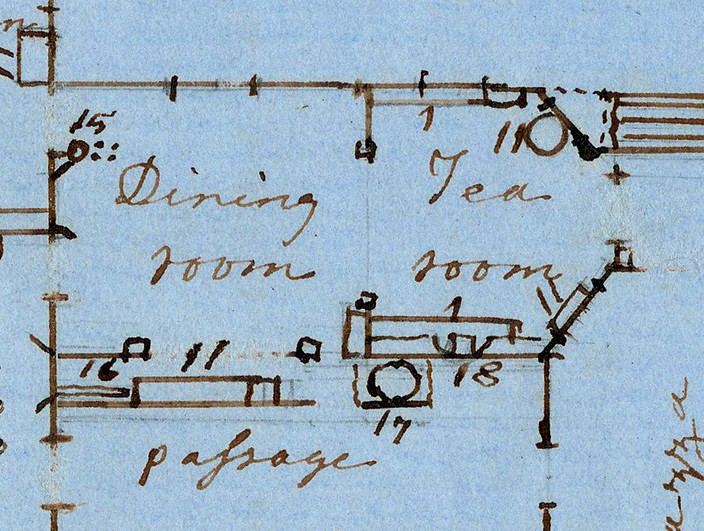 15
1
11
Dining
Tea
room
room
11
1
16
11
18
17
paſsage